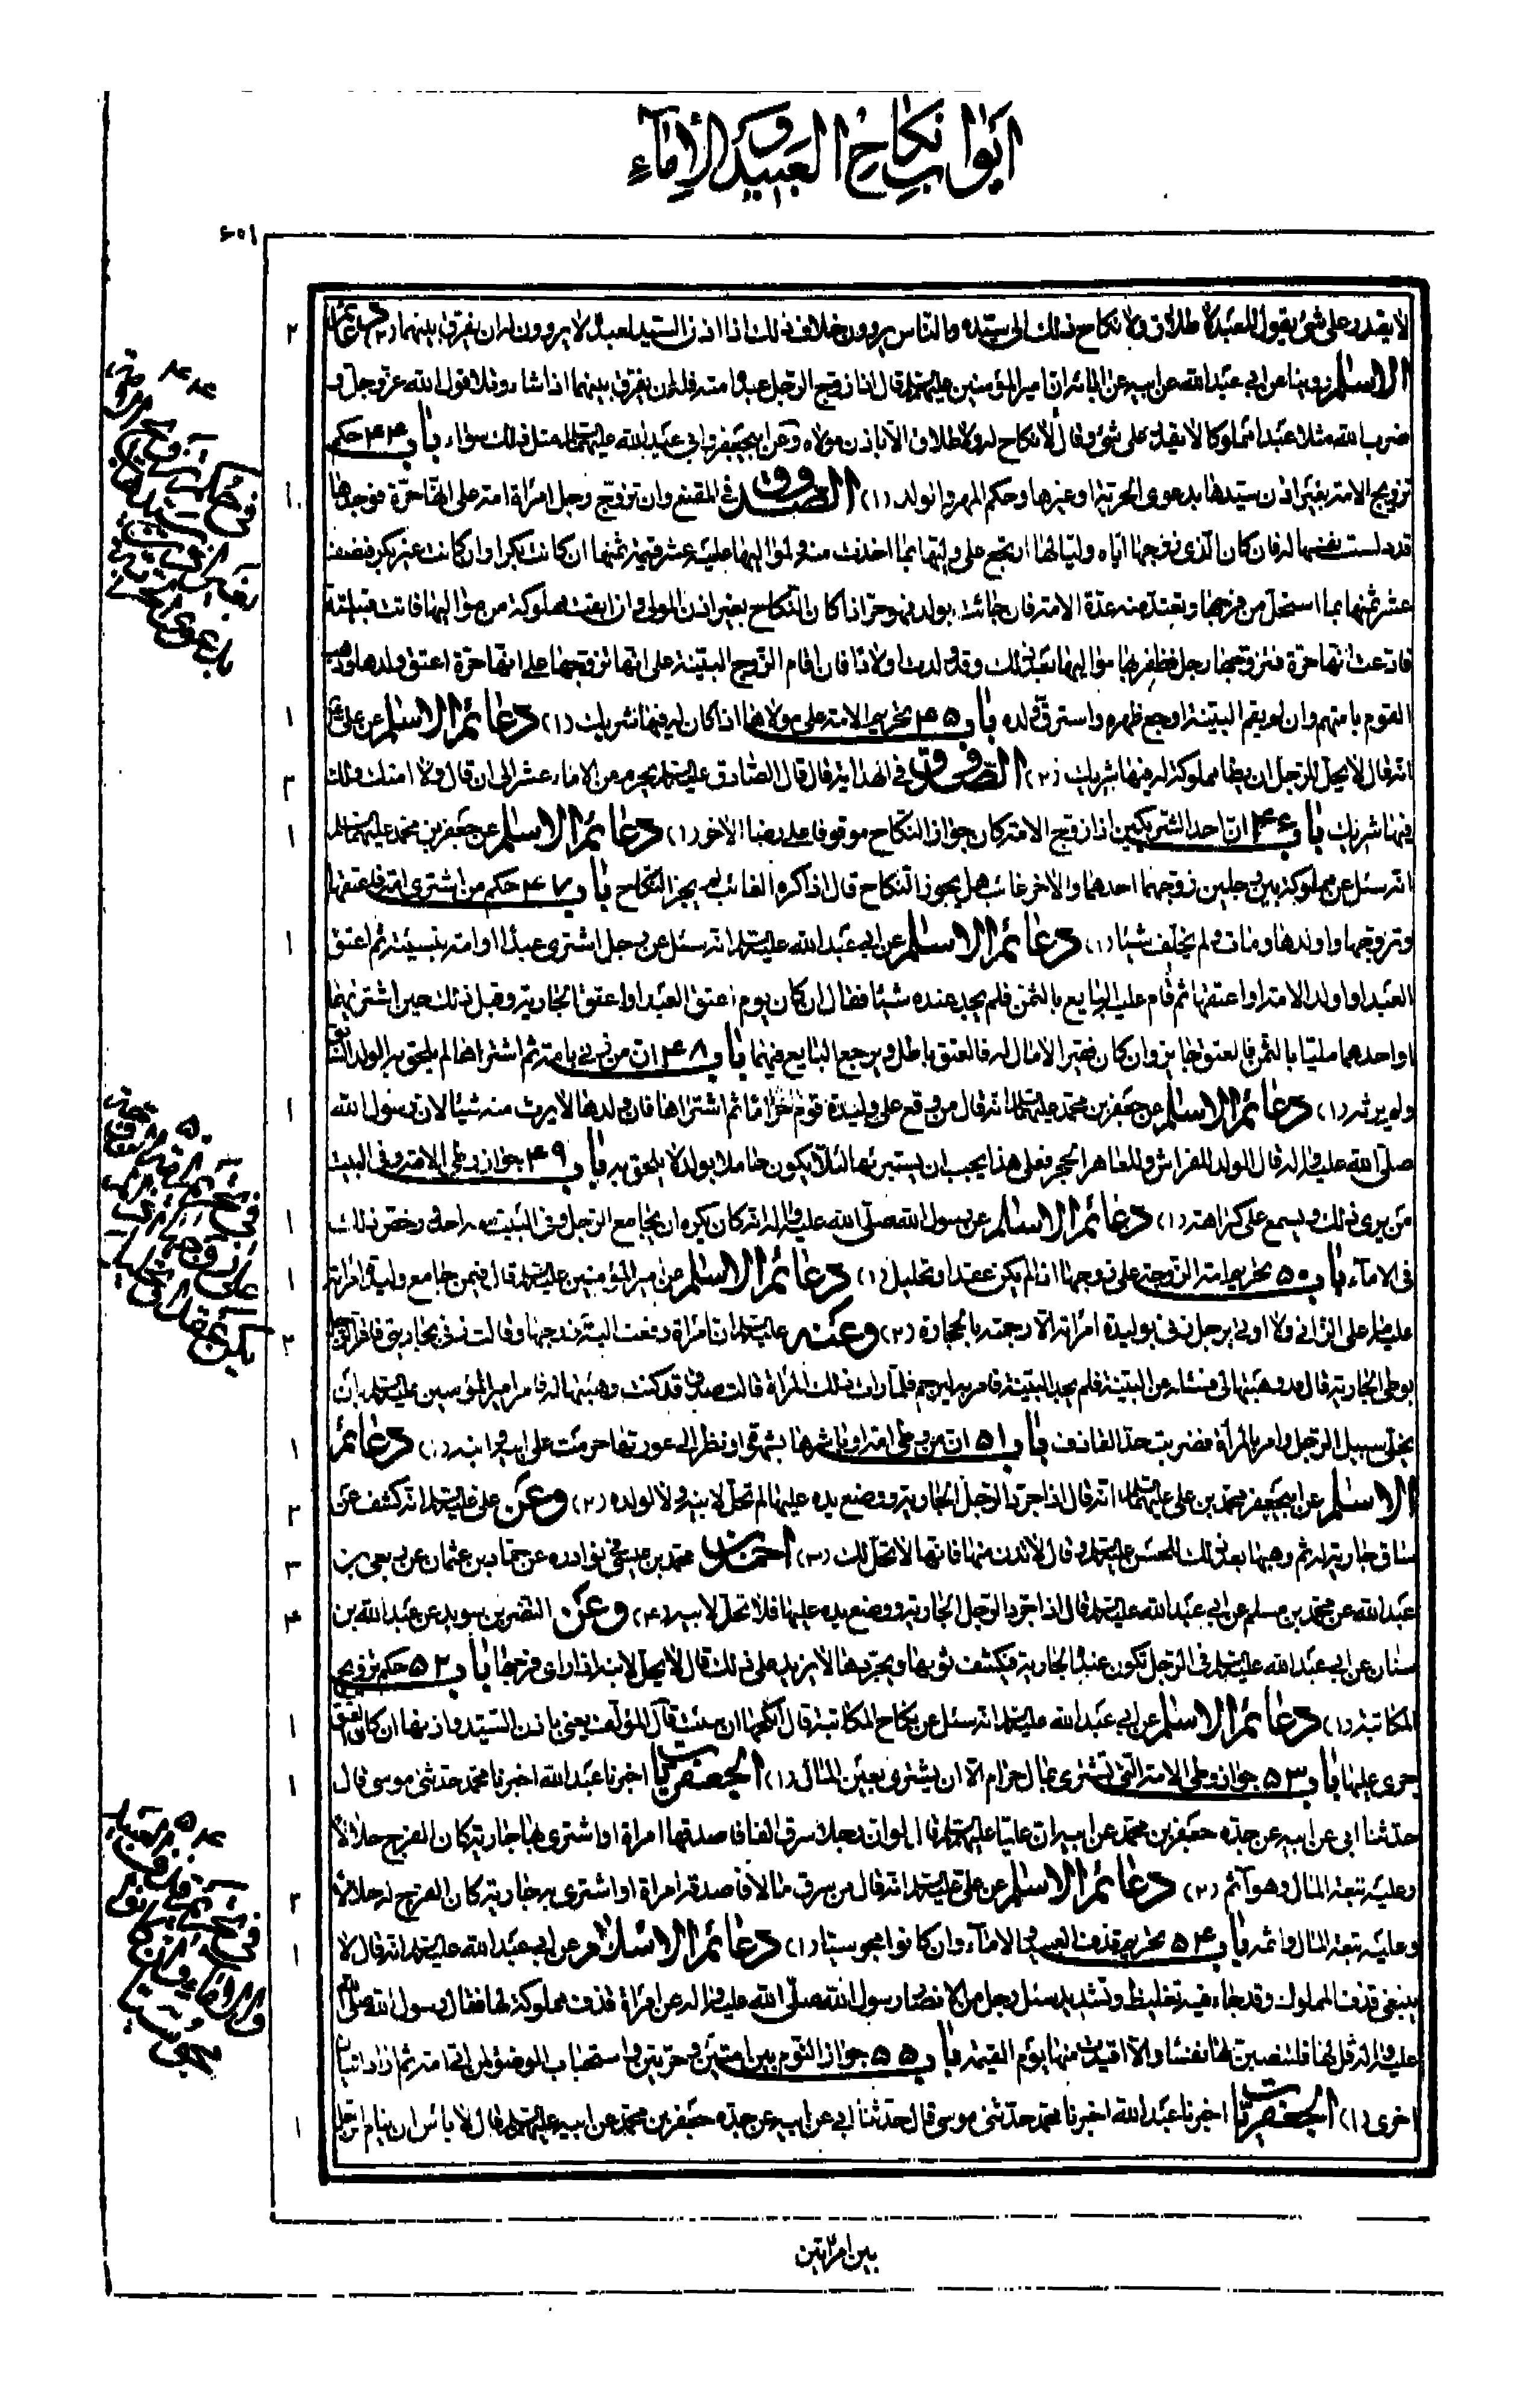 ابواب نكاح العبيد والاماء
٦٠١
لا يقدر على شئ يقول للعبد لا طلاق ولا نكاح ذلك الى سيده والناس يروون خلاف ذلك اذا اذن السيد لعبده لا يرون له ان يفرق بينهما (٢) دعائم ٢
الاسلام روينا عن ابي عبد الله عن ابيه عن ابائه ان امير المؤمنين عليه السلام قال اذا زوج الرجل عبده امته فله ان يفرق بينهما اذا شاء وتلا قول الله عز وجل
ضرب الله مثلا عبدا مملوكا لا يقدر على شئ وقال لا نكاح له ولا طلاق الا باذن مولاه وعن ابي جعفر وابي عبد الله عليهما السلام مثل ذلك سواء باب ٤٤ حكم
تزويج الامة بغير اذن سيدها بدعوى الحرية او غيرها وحكم المهر والولد (١) الصدوق في المقنع وان تزوج رجل امرأة امة على انها حرة فوجدها ١
قد دلست نفسها له فان كان الذي زوجها اياه وليا لها ارتجع على وليها بما اخذت منه ولمواليها عليه عشر قيمة ثمنها ان كانت بكرا وان كانت غير بكر فنصف
عشر ثمنها بما استحل من فرجها وتعتد منه عدة الامة فان جائت بولد فهو حر اذا كان النكاح بغير اذن الموالي واذا ابقت مملوكة من مواليها فاتت قبيلة
فادعت انها حرة فتزوجها رجل فظفر بها مواليها بعد ذلك وقد ولدت اولادا فان اقام الزوج البينة على انه تزوجها على انها حرة اعتق ولدها وذهب
القوم بامتهم وان لم يقم البينة اوجع ظهره واسترق ولده باب ٤٥ تحريم الامة على مولاها اذا كان له فيها شريك (١) دعائم الاسلام عن علي ١
انه قال لا يحل للرجل ان يطأ مملوكة له فيها شريك (٢) الصدوق في الهداية قال قال الصادق عليه السلام يحرم من الاماء عشر الى ان قال ولا امتك ولك ٢
فيها شريك باب ٤٦ ان احد الشريكين اذا زوج الامة كان جواز النكاح موقوفا على رضا الاخر (١) دعائم الاسلام عن جعفر بن محمد عليهما السلام ١
انه سئل عن مملوكة بين رجلين زوجها احدهما والاخر غائب هل يجوز النكاح قال اذا كره الغائب لم يجز النكاح باب ٤٧ حكم من اشترى امة فاعتقها
وتزوجها واولدها ومات ولم يخلف شيئا (١) دعائم الاسلام عن ابي عبد الله عليه السلام انه سئل عن رجل اشترى عبدا او امة بنسيئة ثم اعتق ١
العبد او اولد الامة او اعتقها ثم قام عليه البايع بالثمن فلم يجد عنده شيئا فقال ان كان يوم اعتق العبد او اعتق الجارية وقبل ذلك حين اشتريهما
او احدهما مليا بالثمن فالعتق جايز وان كان فقيرا لا مال له فالعتق باطل ويرجع البايع فيهما باب ٤٨ ان من زنى بامة ثم اشتراها لم يلحق به الولد السابق
ولم يرثه (١) دعائم الاسلام عن جعفر بن محمد عليهما السلام انه قال من وقع على وليدة قوم حراما ثم اشتراها فان ولدها لا يرث منه شيئا لان رسول الله ١
صلى الله عليه وآله قال الولد للفراش وللعاهر الحجر فعلى هذا يجب ان يستبرئها لئلا يكون حاملا بولد لا يلحق به باب ٤٩ جواز وطى الامة وفى البيت
من يرى ذلك ويسمع على كراهة (١) دعائم الاسلام عن رسول الله صلى الله عليه وآله انه كان يكره ان يجامع الرجل وفى البيت معه احد ورخص ذلك ١
فى الاماء باب ٥٠ تحريم امة الزوجة على زوجها اذا لم يكن عقد او تحليل (١) دعائم الاسلام عن امير المؤمنين عليه السلام قال فيمن جامع وليدة امرأته ١
عليه ما على الزانى ولا اوتى برجل زنى بوليدة امرأته الا رجمته بالحجارة (٢) وعنه عليه السلام ان امرأة رفعت اليه زوجها وقالت زنى بجاريتي فاقر الرجل ٢
بوطى الجارية قال قد وهبتها لي فسئله عن البينة فلم يجد البينة فامر به ليرجم فلما رات ذلك المرأة قالت صدق قد كنت وهبتها له فامر امير المؤمنين عليه السلام بان
يخلى سبيل الرجل وامر بالمرأة فضربت حد القاذف باب ٥١ ان من وطى امة او باشرها بشهوة او نظر الى عورتها حرمت على ابيه وابنه (١) دعائم ١
الاسلام عن ابي جعفر محمد بن علي عليهما السلام انه قال اذا جرد الرجل الجارية ووضع يده عليها لم تحل لابيه ولا لولده (٢) وعن علي عليه السلام انه كشف عن ٢
ساق جارية له ثم وهبها بعد ذلك للحسن عليه السلام وقال لا تدن منها فانها لا تحل لك (٣) احمد بن محمد بن عيسى في نوادره عن حماد بن عثمان عن ربعي بن ٣
عبد الله عن محمد بن مسلم عن ابي عبد الله عليه السلام قال اذا جرد الرجل الجارية ووضع يده عليها فلا تحل لابيه (٤) وعن النضر بن سويد عن عبد الله بن ٤
سنان عن ابي عبد الله عليه السلام في الرجل تكون عنده الجارية فيكشف ثوبها ويجردها لا يزيد على ذلك قال لا يحل لابنه اذا راى فرجها باب ٥٢ حكم تزويج
المكاتبة (١) دعائم الاسلام عن ابي عبد الله عليه السلام انه سئل عن نكاح المكاتبة قال انكحها ان شئت قال المؤلف يعنى باذن السيد واذنها ان كان العتق ١
جرى عليها باب ٥٣ جواز وطى الامة التي تشترى بمال حرام الا ان يشترى بعين المال (١) الجعفريات اخبرنا عبد الله اخبرنا محمد حدثني موسى قال ١
حدثنا ابى عن ابيه عن جده جعفر بن محمد عن ابيه ان عليا عليه السلام قال لو ان رجلا سرق الفا فاصدقها امرأة او اشترى بها جارية كان الفرج حلالا
وعليه تبعة المال وهو آثم (٢) دعائم الاسلام عن علي عليه السلام انه قال من سرق مالا فاصدقه امرأة او اشترى به جارية كان الفرج له حلالا ٢
وعليه تبعة المال واثمه باب ٥٤ تحريم قذف العبيد والاماء وان كانوا مجوسيا (١) دعائم الاسلام عن ابي عبد الله عليه السلام انه قال لا ١
ينبغي قذف المملوك وقد جاء فيه تغليظ وتشديد سئل رجل من الانصار رسول الله صلى الله عليه وآله عن امرأة قذفت مملوكة لها فقال رسول الله صلى الله
عليه وآله قل لها فلتصبر لها نفسها والا اقيدت منها يوم القيمة باب ٥٥ جواز النوم بين امتين وحرتين واستحباب الوضوء لمن اتى امة ثم اراد اتيان
اخرى (١) الجعفريات اخبرنا عبد الله اخبرنا محمد حدثني موسى قال حدثنا ابي عن ابيه عن جده جعفر بن محمد عن ابيه عليهم السلام قال لا باس ان ينام الرجل ١
بين امرأتين